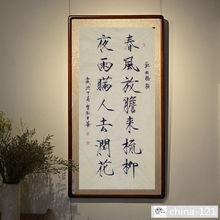 春風放膽來梳柳
夜雨瞞人去潤花
china-121